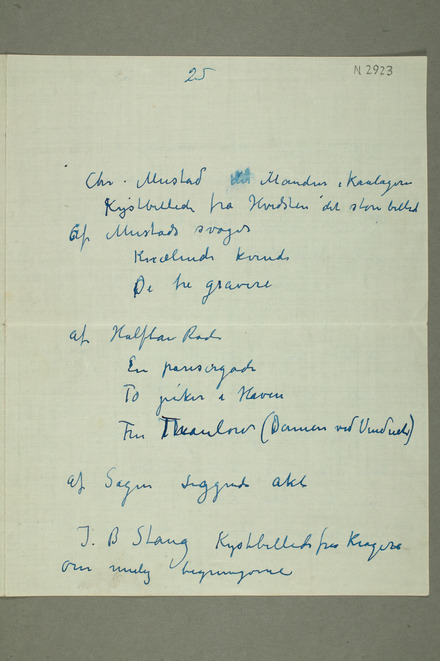 25
N 2923
Chr. Mustad det Manden i Kaalageren
Kystbillede fra Hvidsten det store billed
af Mustads svoger
Knælende kvinde
De tre gravere
af Halfdan Rode
En parisergade
To piker i Haven
Fru Thaulow (Damen ved Vinduet)
af Sagen liggende akt
J. B Stang Kystbillede fra Kragerø
om mulig